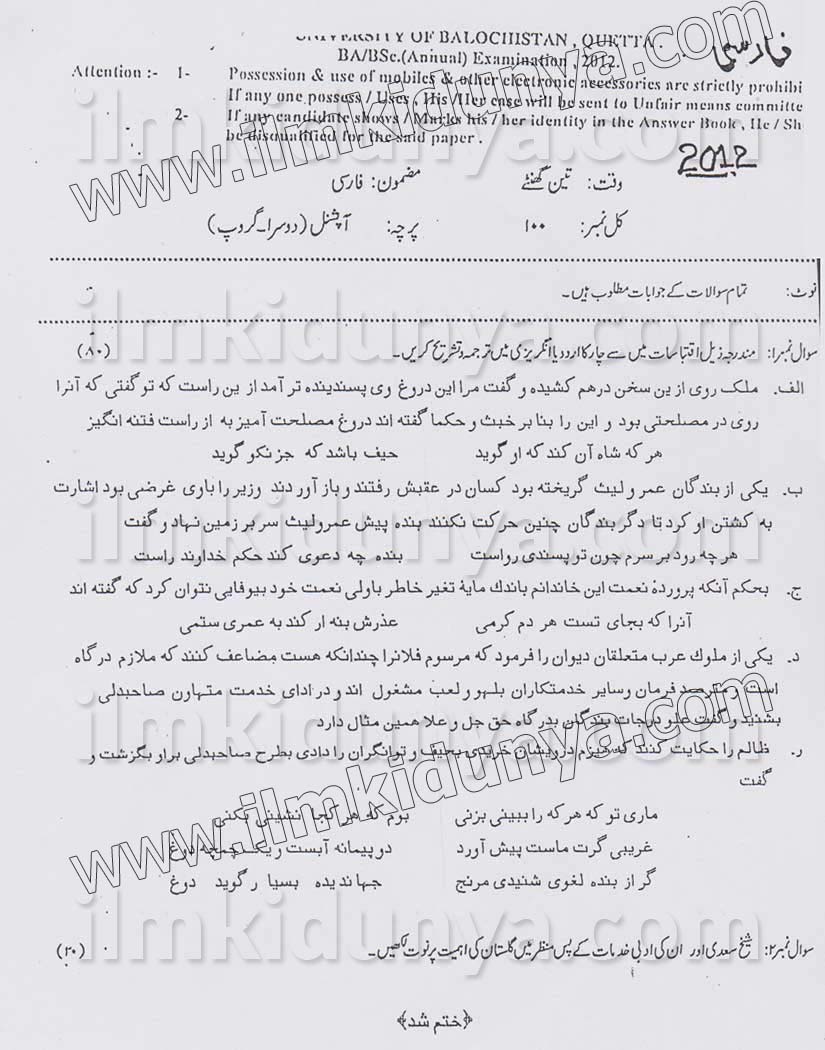 UNIVERSITY OF BALOCHISTAN , QUETTA .
فارسی
BA/BSc.(Annual) Examination , 2012.
Attention :- 1- Possession & use of mobiles & other electronic accessories are strictly prohibi
If any one possess / Uses , His /Her case will be sent to Unfair means committe
2- If any candidate shows / Marks his / her identity in the Answer Book , He / Sh
be disqualified for the said paper .
2012
وقت: تین گھنٹے مضمون: فارسی
کل نمبر: ۱۰۰ پرچہ: آپشنل (دوسرا-گروپ)
نوٹ: تمام سوالات کے جوابات مطلوب ہیں۔
سوال نمبر۱: مندرجہ ذیل اقتباسات میں سے چار کا اردو یا انگریزی میں ترجمہ و تشریح کریں۔ (۸۰)
الف۔ ملک روی ازین سخن درهم کشیده و گفت مرا این دروغ وی پسندیننده تر آمد ازین راست که تو گفتی که آنرا
روی در مصلحتی بود و این را بنا بر خبث و حکما گفته اند دروغ مصلحت آمیز به از راست فتنه انگیز
هر که شاه آن کند که او گوید حیف باشد که جز نکو گوید
ب۔ یکی از بندگان عمرو لیث گریخته بود کسان در عقبش رفتند و باز آوردند وزیر را باوی غرضی بود اشارت
به کشتن او کرد تا دگر بندگان چنین حرکت نکنند بنده پیش عمرولیث سر بر زمین نهاد و گفت
هر چه رود بر سرم چون تو پسندی رواست بنده چه دعوی کند حکم خداوند راست
ج۔ بحکم آنکه پروردۀ نعمت این خاندانم باندك مایۀ تغیر خاطر باولی نعمت خود بیوفایی نتوان کرد که گفته اند
آنرا که بجای تست هر دم کرمی عذرش بنه ار کند به عمری ستمی
د۔ یکی از ملوك عرب متعلقان دیوان را فرمود که مرسوم فلانرا چندانکه هست مضاعف کنند که ملازم درگاه
است و مترصد فرمان وسایر خدمتکاران بلهو و لعب مشغول اند و در ادای خدمت متهاون صاحبدلی
بشنید و گفت علو درجات بندگان بدرگاه حق جل و علا همین مثال دارد
ر۔ ظالم را حکایت کنند که هیزم درویشان خریدی بحیف و توانگران را دادی بطرح صاحبدلی براو بگزشت و
گفت
ماری تو که هر که را ببینی بزنی بوم که هر کجا نشینی بکنی
غریبی گرت ماست پیش آورد دو پیمانه آبست و یک چمچه دوغ
گر از بنده لغوی شنیدی مرنج جهاندیده بسیا ر گوید دوغ
سوال نمبر۲: شیخ سعدی اور ان کی ادبی خدمات کے پس منظر میں گلستان کی اہمیت پر نوٹ لکھیں۔ (۲۰)
﴿ختم شد﴾
www.ilmkidunya.com
ilmkidunya.com
ilmkidunya.com
ilmkidunya.com
ilmkidunya.com
www.ilmkidunya.com
www.ilmkidunya.com
ilmkidunya.com